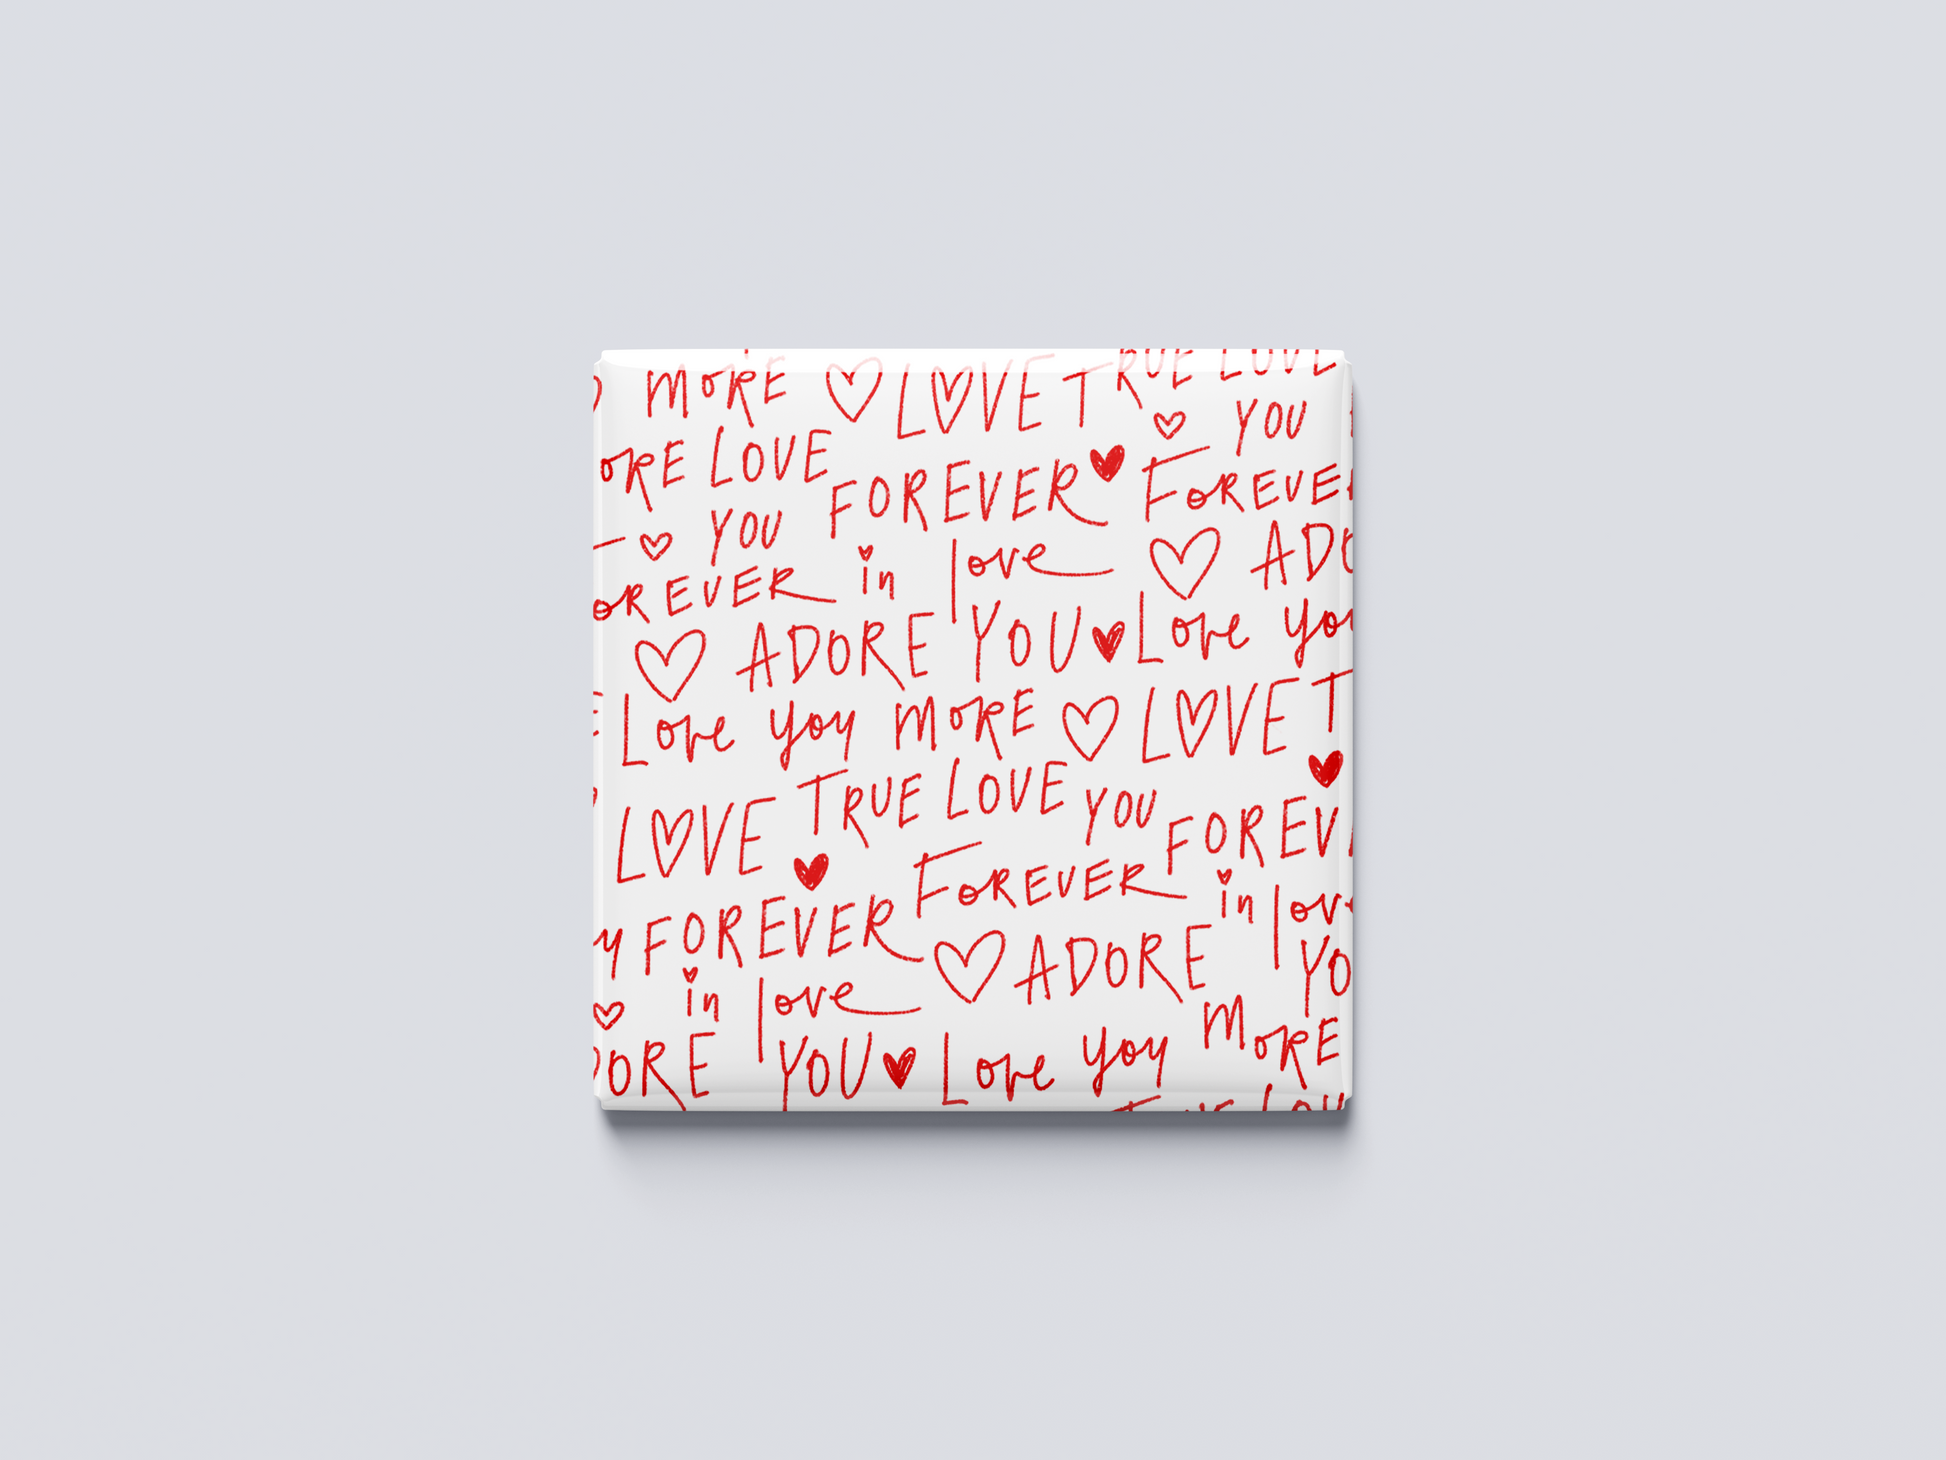 MORE LOVE TRUE LOVE
YOU
ORE LOVE FOREVER FOREVE
YOU
OREVER in love ADO
ADORE YOU Love you
Love you MORE LOVE T
LOVE TRUE LOVE YOU FOREV
FOREVER FOREVER in love
in love ADORE YO
DORE YOU Love you MORE